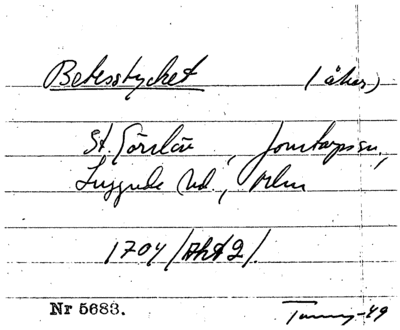 Betesstycket (åker)
St. Görslöv, Jonstorps sn,
Luggude hd., Mlm
1704 (Akt 2).
Nr 5683. -49